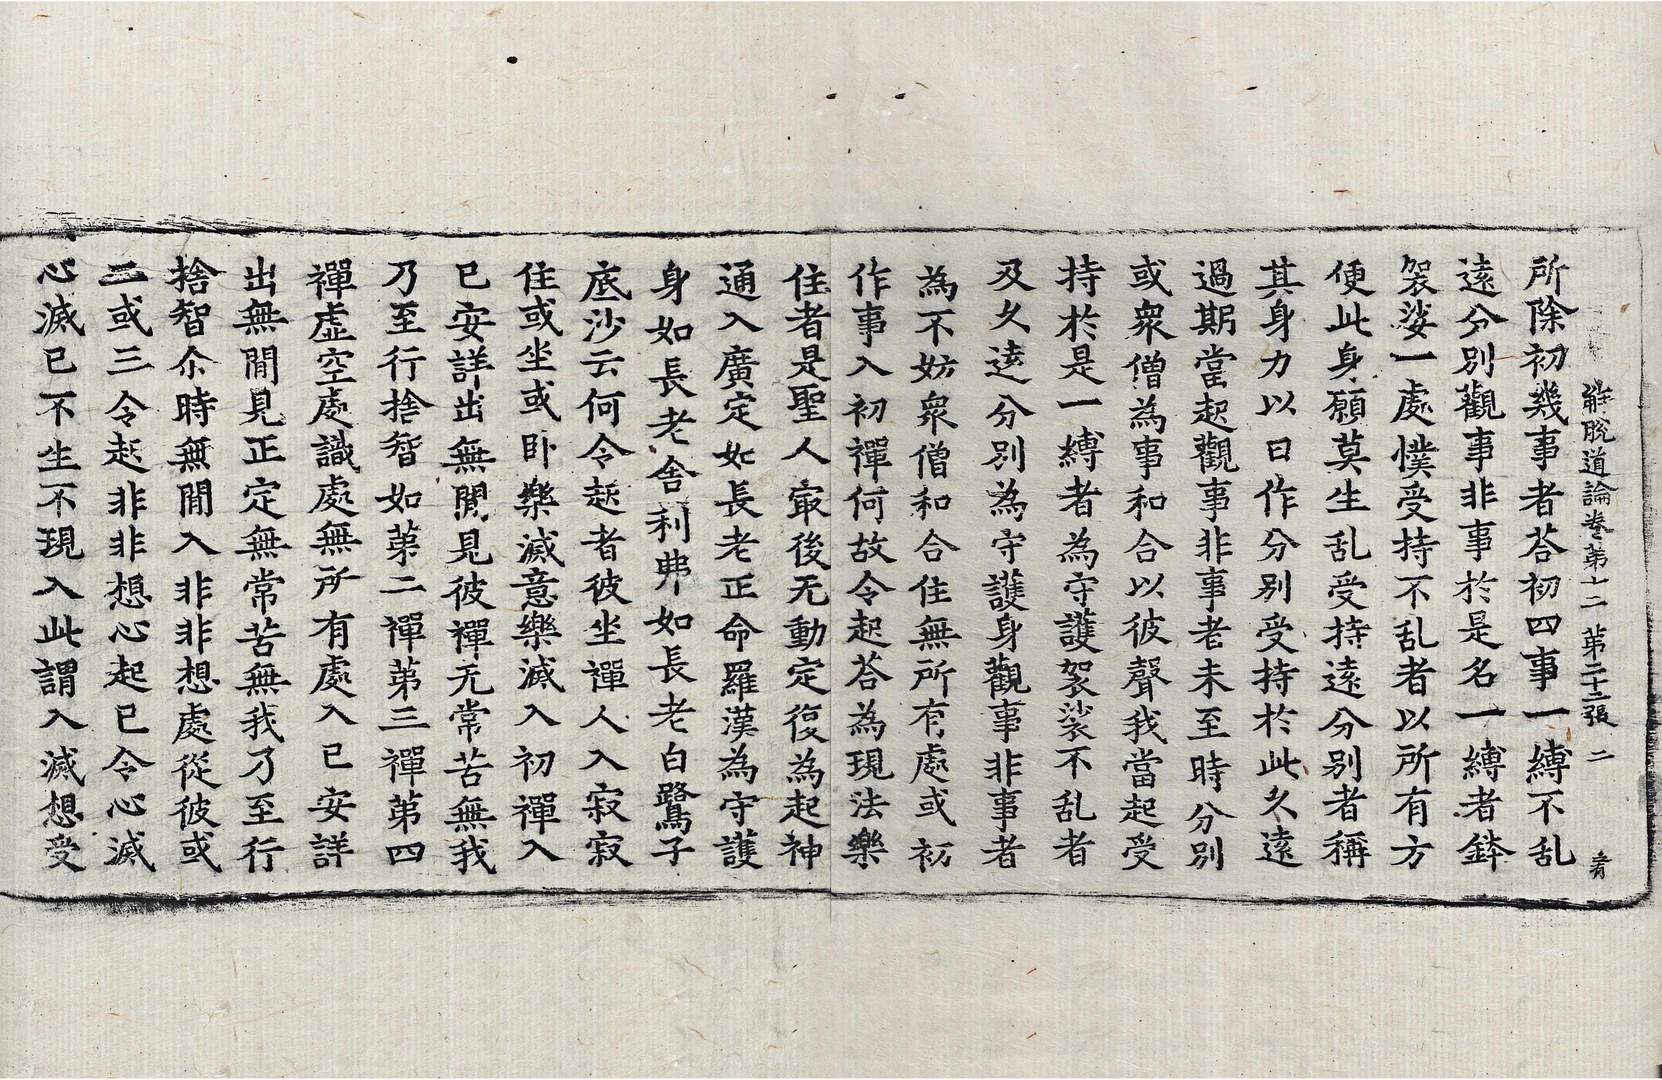 解脫道論卷第十二 第二十二張 二 肴
所除初幾事者荅初四事一縛不乱
遠分別觀事非事於是名一縛者鉢
袈裟一處憹受持不乱者以所有方
便此身願莫生乱受持遠分別者稱
其身力以日作分別受持於此久遠
過期當起觀事非事者未至時分別
或衆僧為事和合以彼聲我當起受
持於是一縛者為守護袈裟不乱者
及久遠分別為守護身觀事非事者
為不妨衆僧和合住無所有處或初
作事入初禪何故令起荅為現法樂
住者是聖人㝡後无動定復為起神
通入廣定如長老正命羅漢為守護
身如長老舍利弗如長老白鷺子
底沙云何令起者彼坐禪人入寂寂
住或坐或卧樂滅意樂滅入初禪入
已安詳出無閒見彼禪无常苦無我
乃至行捨智如第二禪第三禪第四
禪虛空處識處無所有處入已安詳
出無閒見正定無常苦無我乃至行
捨智尒時無閒入非非想處從彼或
二或三令起非非想心起已令心滅
心滅已不生不現入此謂入滅想受